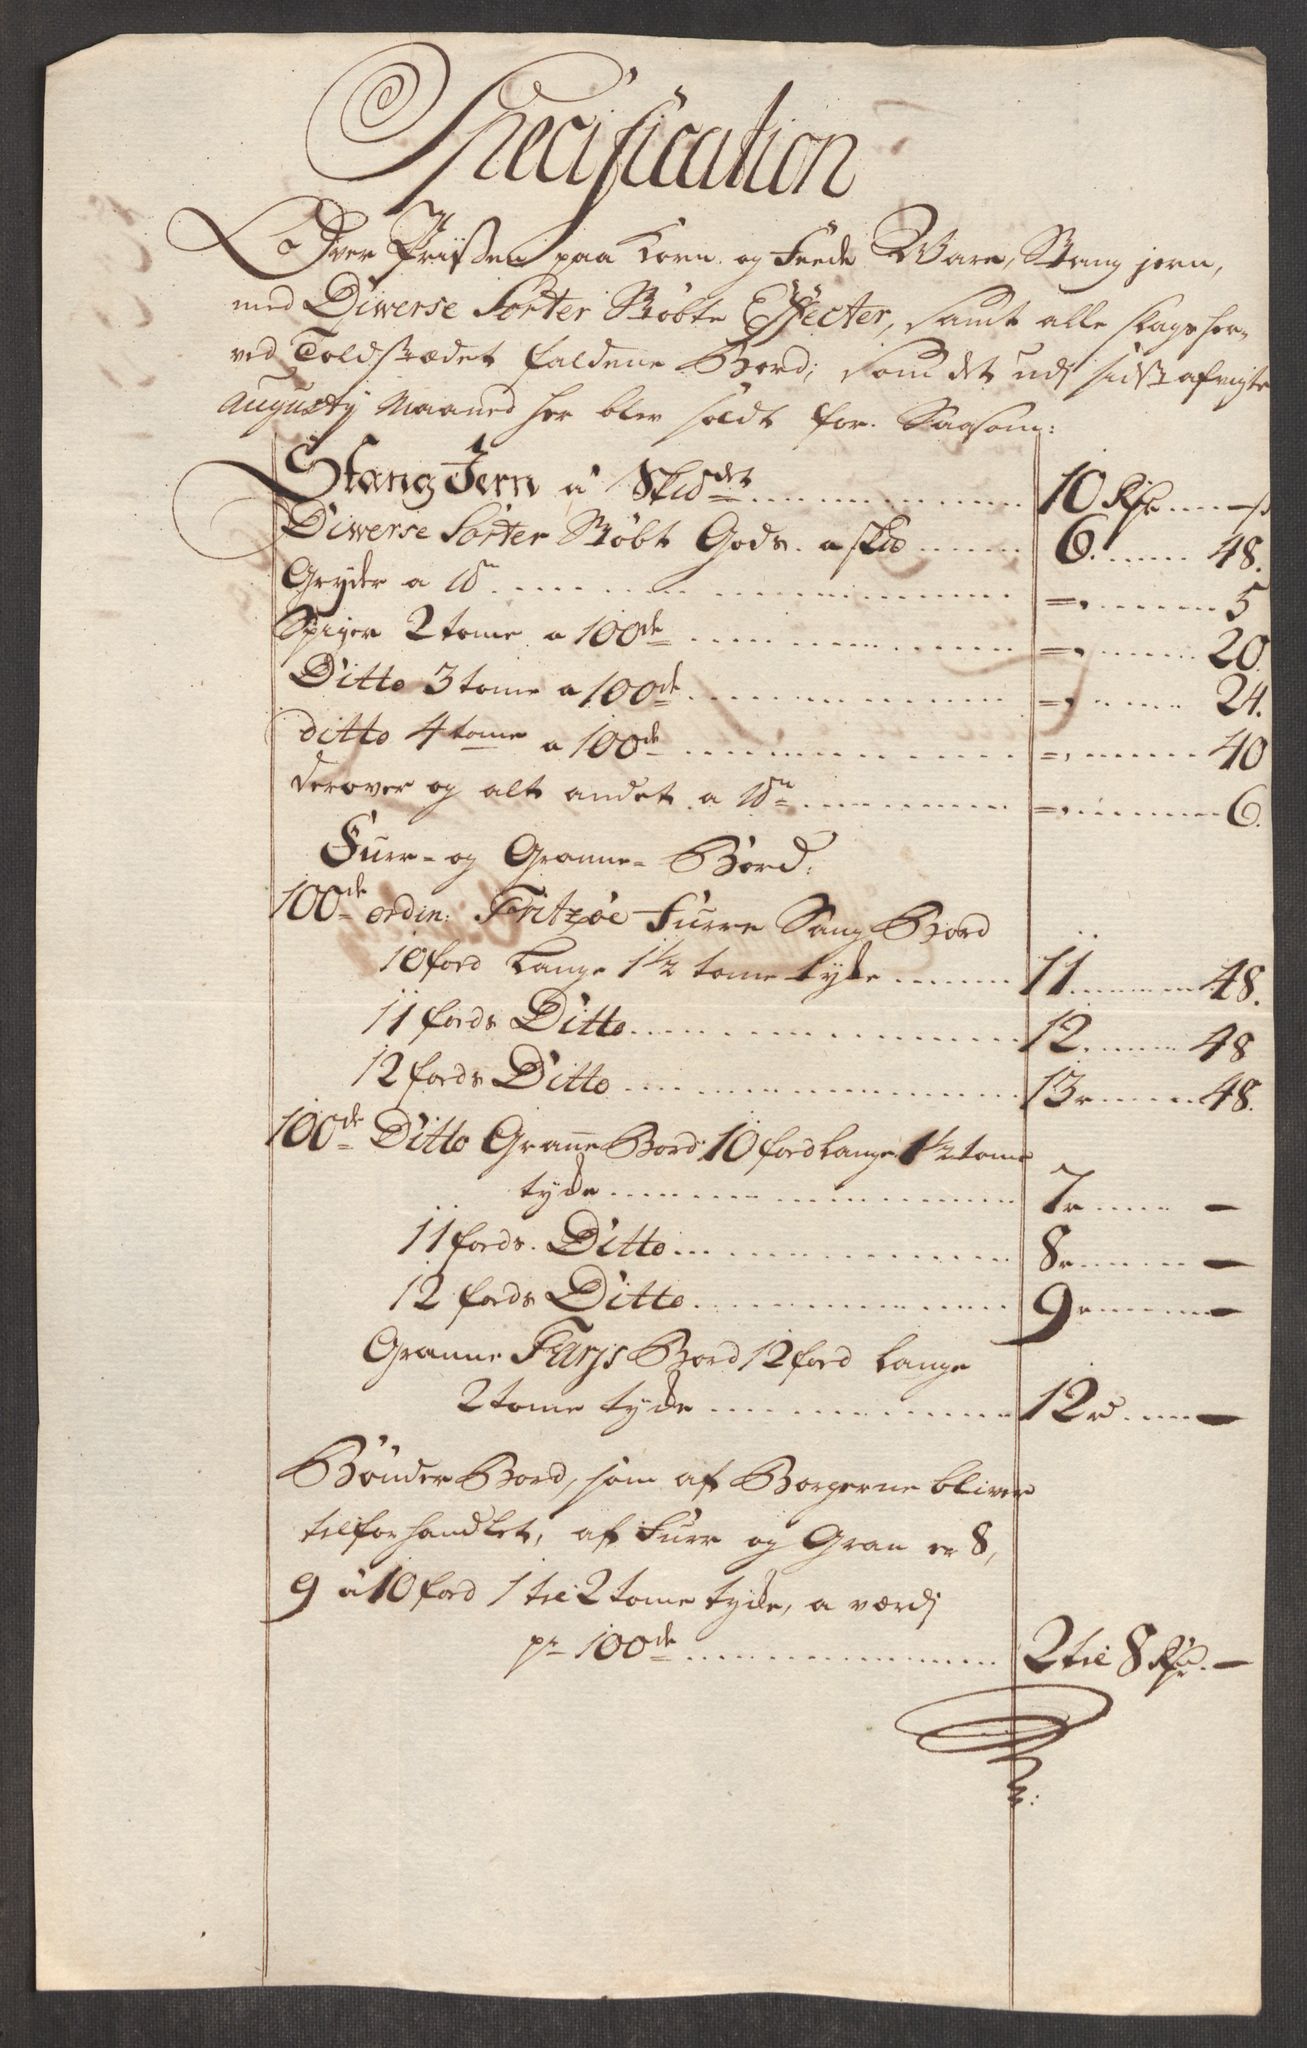 Specification
Over Prisen paa Korn og Feede Ware, Stang jern,
med Diwerse Sorter Støbte Effecter, samt alle slags her-
ved Toldstædet faldene Bord; som det udj sidst afvigte
Augustij Maaned her blev soldt for. Saasom:
Stang Jern á 1 Skid det ... 10 Rdr ... – s
Diwerse Sorter Støbt Gods a skid ... 6 ... 48.
Gryder a 1d ... =, ... 5
Spiger 2 tome a 100de ... =, ... 20.
Ditto 3 tome a 100de ... =, ... 24.
ditto 4 tome a 100de ... =, ... 40
derover og alt andet a 1d ... =, ... 6.
Furr- og Granne- Bord:
100de ordin: Fritzøe Furre Saug Bord
10 ford lange 1½ tome tyke ... 11 ... 48.
11 fords Ditto ... 12 ... 48
12 fords Ditto ... 13 ... 48.
100de Ditto Granne Bord 10 ford lange 1½ tome
tyke ... 7 ... –
11 fords Ditto ... 8 ... –
12 fords Ditto ... 9 ... –
Granne Bord 12 ford lange
2 tome tyke ... 12 ... –
Bønder Bord, som af Borgerne bliver
tilforhandlet, af Furr og Gran er 8,
9 á 10 ford 1 til 2 tome tyke, a værdj
pr 100de ... 2 til 8 Rdr. –